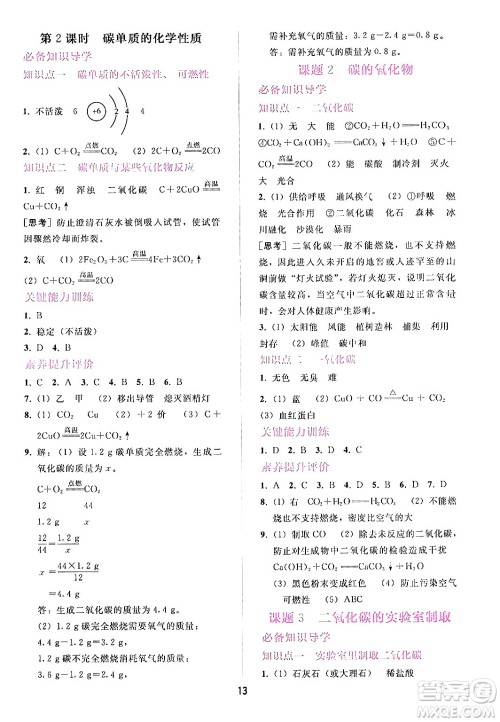 第2课时 碳单质的化学性质
必备知识导学
知识点一 碳单质的不活泼性、可燃性
1. 不活泼 6 +6 2 4
2. (1) C+O₂ 点燃 CO₂ (2) 2C+O₂ 点燃 2CO
知识点二 碳单质与某些氧化物反应
1. 红 铜 浑浊 二氧化碳 C+2CuO 高温
2Cu+CO₂↑
[思考] 防止澄清石灰水被倒吸入试管,使试管
因骤然冷却而炸裂。
2. 氧 (1) 2Fe₂O₃+3C 高温 4Fe+3CO₂↑
(2) C+CO₂ 高温 2CO
关键能力训练
1. B
2. 稳定(不活泼)
3. D 4. D
素养提升评价
1. C 2. A 3. C 4. B 5. B 6. A
7. (1) 乙 甲 (2) 移出导管 熄灭酒精灯
8. (1) CO₂ (2) CO (3) +2价 (4) C+
2CuO 高温 2Cu+CO₂↑
9. 解:(1) 设1.2 g碳单质完全燃烧,生成二
氧化碳的质量为x。
C+O₂ 点燃 CO₂
12 44
1.2 g x
12/44=1.2 g/x
x=44×1.2 g/12
x=4.4 g
答:生成二氧化碳的质量为4.4 g。
(2) 1.2 g碳单质完全燃烧消耗氧气的质量为
4.4 g-1.2 g=3.2 g
答:1.2 g碳单质完全燃烧消耗氧气的质量
为3.2 g。
(3) 4.0 g-3.2 g=0.8 g
需补充氧气的质量=1.2 g+3.2 g-
3.6 g=0.8 g
答:需补充氧气的质量为0.8 g。
课题2 碳的氧化物
必备知识导学
知识点一 二氧化碳
1. (1) 无 大 能 ②CO₂+H₂O=H₂CO₃
(2) ①不能 不 ②CO₂+H₂O=H₂CO₃
C+CO₂ 高温 2CO 能 碳酸 制冷剂 灭
火 大 光合
2. (1) 供给呼吸 通风换气 (2) ①呼吸 燃
烧 光合作用 ②二氧化碳 化石 森林 冰
川 沙漠化 暴雨
[思考] 二氧化碳一般不能燃烧,也不能支持
燃烧,二氧化碳的密度比空气大,因此,在
进入久未开启的地窖或人迹罕至的山
洞前能做“灯火试验”,若灯火熄灭,则说明二
氧化碳含量高,当空气中二氧化碳含量过高
时,对人体健康有影响。
3. (1) 太阳能 风能 植树造林 捕集 利用
封存 (2) 峰值 碳中和
知识点二 一氧化碳
1. 无色 无臭 难
2. (1) 蓝 2CO₂ (2) CO+CuO △ Cu+CO₂
(3) 血红蛋白
关键能力训练
1. D 2. B 3. D 4. C
素养提升评价
1. A 2. D 3. D 4. C 5. B 6. B 7. D
8. (1) 右 CO₂+H₂O=H₂CO₃
(2) 挤压胶头滴管
9. (1) 二氧化碳能与水发生反应 二氧化碳
(2) 防止生成物中二氧化碳的检验造成干扰
(3) 黑色固体变成红色 (4) 防止污染空气
可燃性 (5) ABC
课题3 二氧化碳的实验室制取
必备知识导学
知识点一 实验室里制取二氧化碳
1. (1) 石灰石(或大理石) 稀盐酸
13